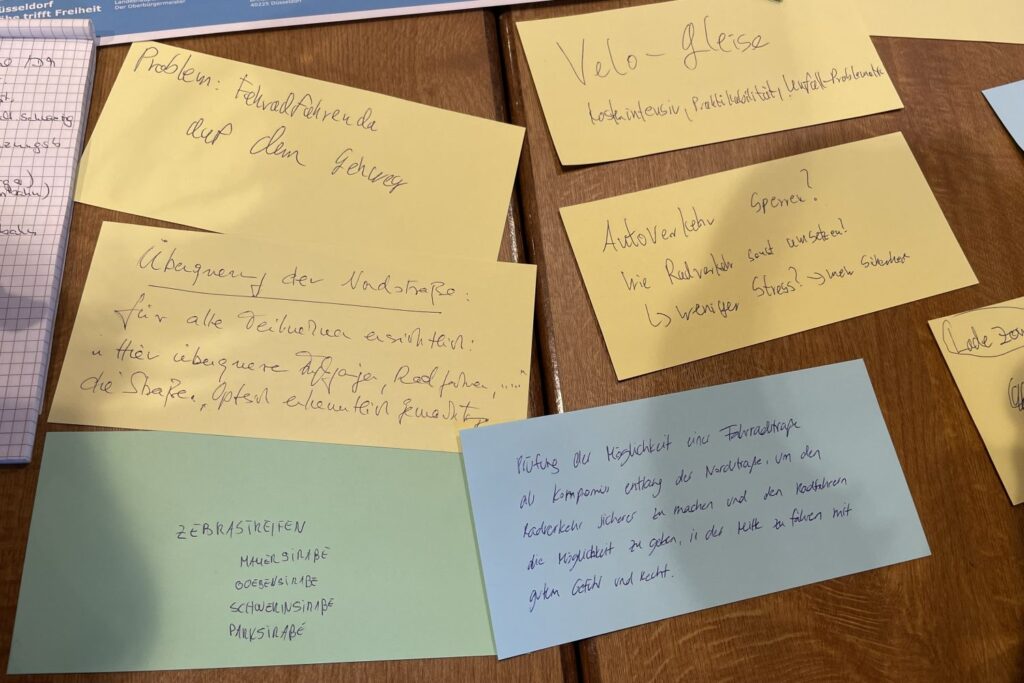 üsseldorf
he trifft Freiheit
Der Oberbürgermeister
40225 Düsseldorf
Problem: Fahrradfahrende
auf dem Gehweg
Velo-Gleise
kostenintensiv, Praktikabilität, Unfall-Problematik
Autoverkehr sperren?
Wie Radverkehr sonst umsetzen?
↳ weniger Stress? → mehr Sicherheit
Überquerung der Nordstraße:
für alle Teilnehmer ersichtlich:
„Hier überqueren Fußgänger, Radfahrer, ....."
die Straße, Optisch erkenntlich gemacht
Lade zon
ZEBRASTREIFEN
MAUERSTRAßE
GOEBENSTRAßE
SCHWERINSTRAßE
PARKSTRAßE
Prüfung der Möglichkeit einer Fahrradstraße
als Kompromiss entlang der Nordstraße, um den
Radverkehr sicherer zu machen und den Radfahrern
die Möglichkeit zu geben, in der Mitte zu fahren mit
gutem Gefühl und Recht.